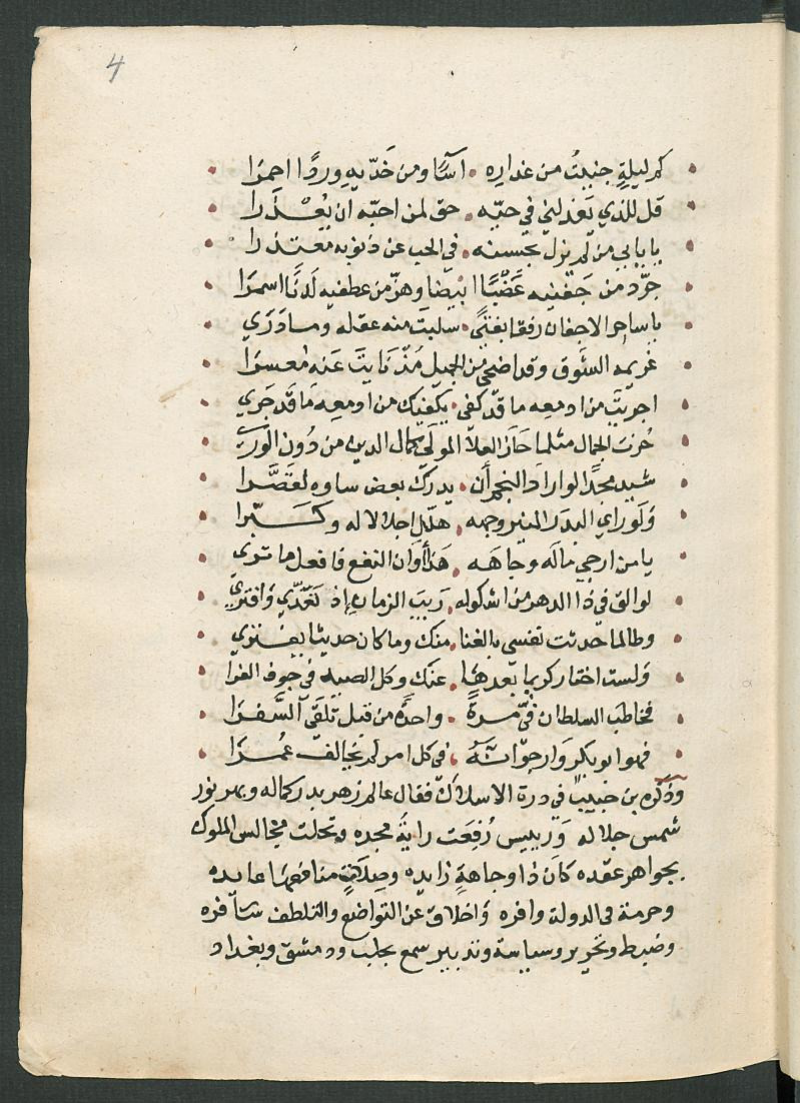 4
كم ليلةٍ جنيتُ من عذاره . آسًا ومن خدّيهِ وردًا احمرا
قل للذي يعذلني في حبّه . حق لمن احبّه ان يُعْذَرا
يا بابي من لم يزل بحسنه . في الحب عن ذنوبه معتذرا
جرّد من جَفنيه عَضْبًا ابيضا وهزّ من عطفيه لَدنًا اسمرا
يا ساحر الاجفان رفقا بفتىً . سلبتَ منه عقله وما درَي
غريمه الشوق وقد اضحى من الجميل مُذ نايتَ عَنه مُعسرا
اجريتَ من ادمعه ما قد كفى . يكفيك من ادمعه مَا قَد جَري
حُزتَ الجمال مثلما حَاز العلا المولَي كمال الدين من دُون الوري
شيد مجدًا لو اراد النجم أن . يدرك بعض ساوه لقصَّرا
وَلو راي البدر المنير وجهه . هلّل اجلالا له وكبّرا
يا من ارجي ماله وجاهَه . هَذا أوَان النفع فافعل ما ترى
لو الق في ذا الدهر من اشكو له . رَيبَ الزمان إذ تعَدّي وَافتري
وطالما حدثت نفسى بالغنا . منك وما كان حديثا يفتري
وَلست اختار كريما بعدهَا . عنك وكل الصيد في جوف الفرا
فخاطب السلطان فيّ مرةً . واحدةً من قبل تلقَى السَّفرَا
فهو ابو بكر وَارجو انَّهُ . في كل امر لم يخالف عُمرَا
وذكره بن حبيب في درة الاسلاك فقال عالم زهر بدر كماله وبهر نور
شمس جلاله وَرييس رُفِعَت رايةُ مجده وتحلت مجالس الملوك
بجواهر عقده كان ذا وجاهةٍ زايده وصِلاتٍ منافعها عايده
وحرمة في الدولة وافره وَاخلاق عن التواضع والتلطف سافره
وضبط وتحرير وسياسة وتدبير سمع بحلب ودمشق وبغداد